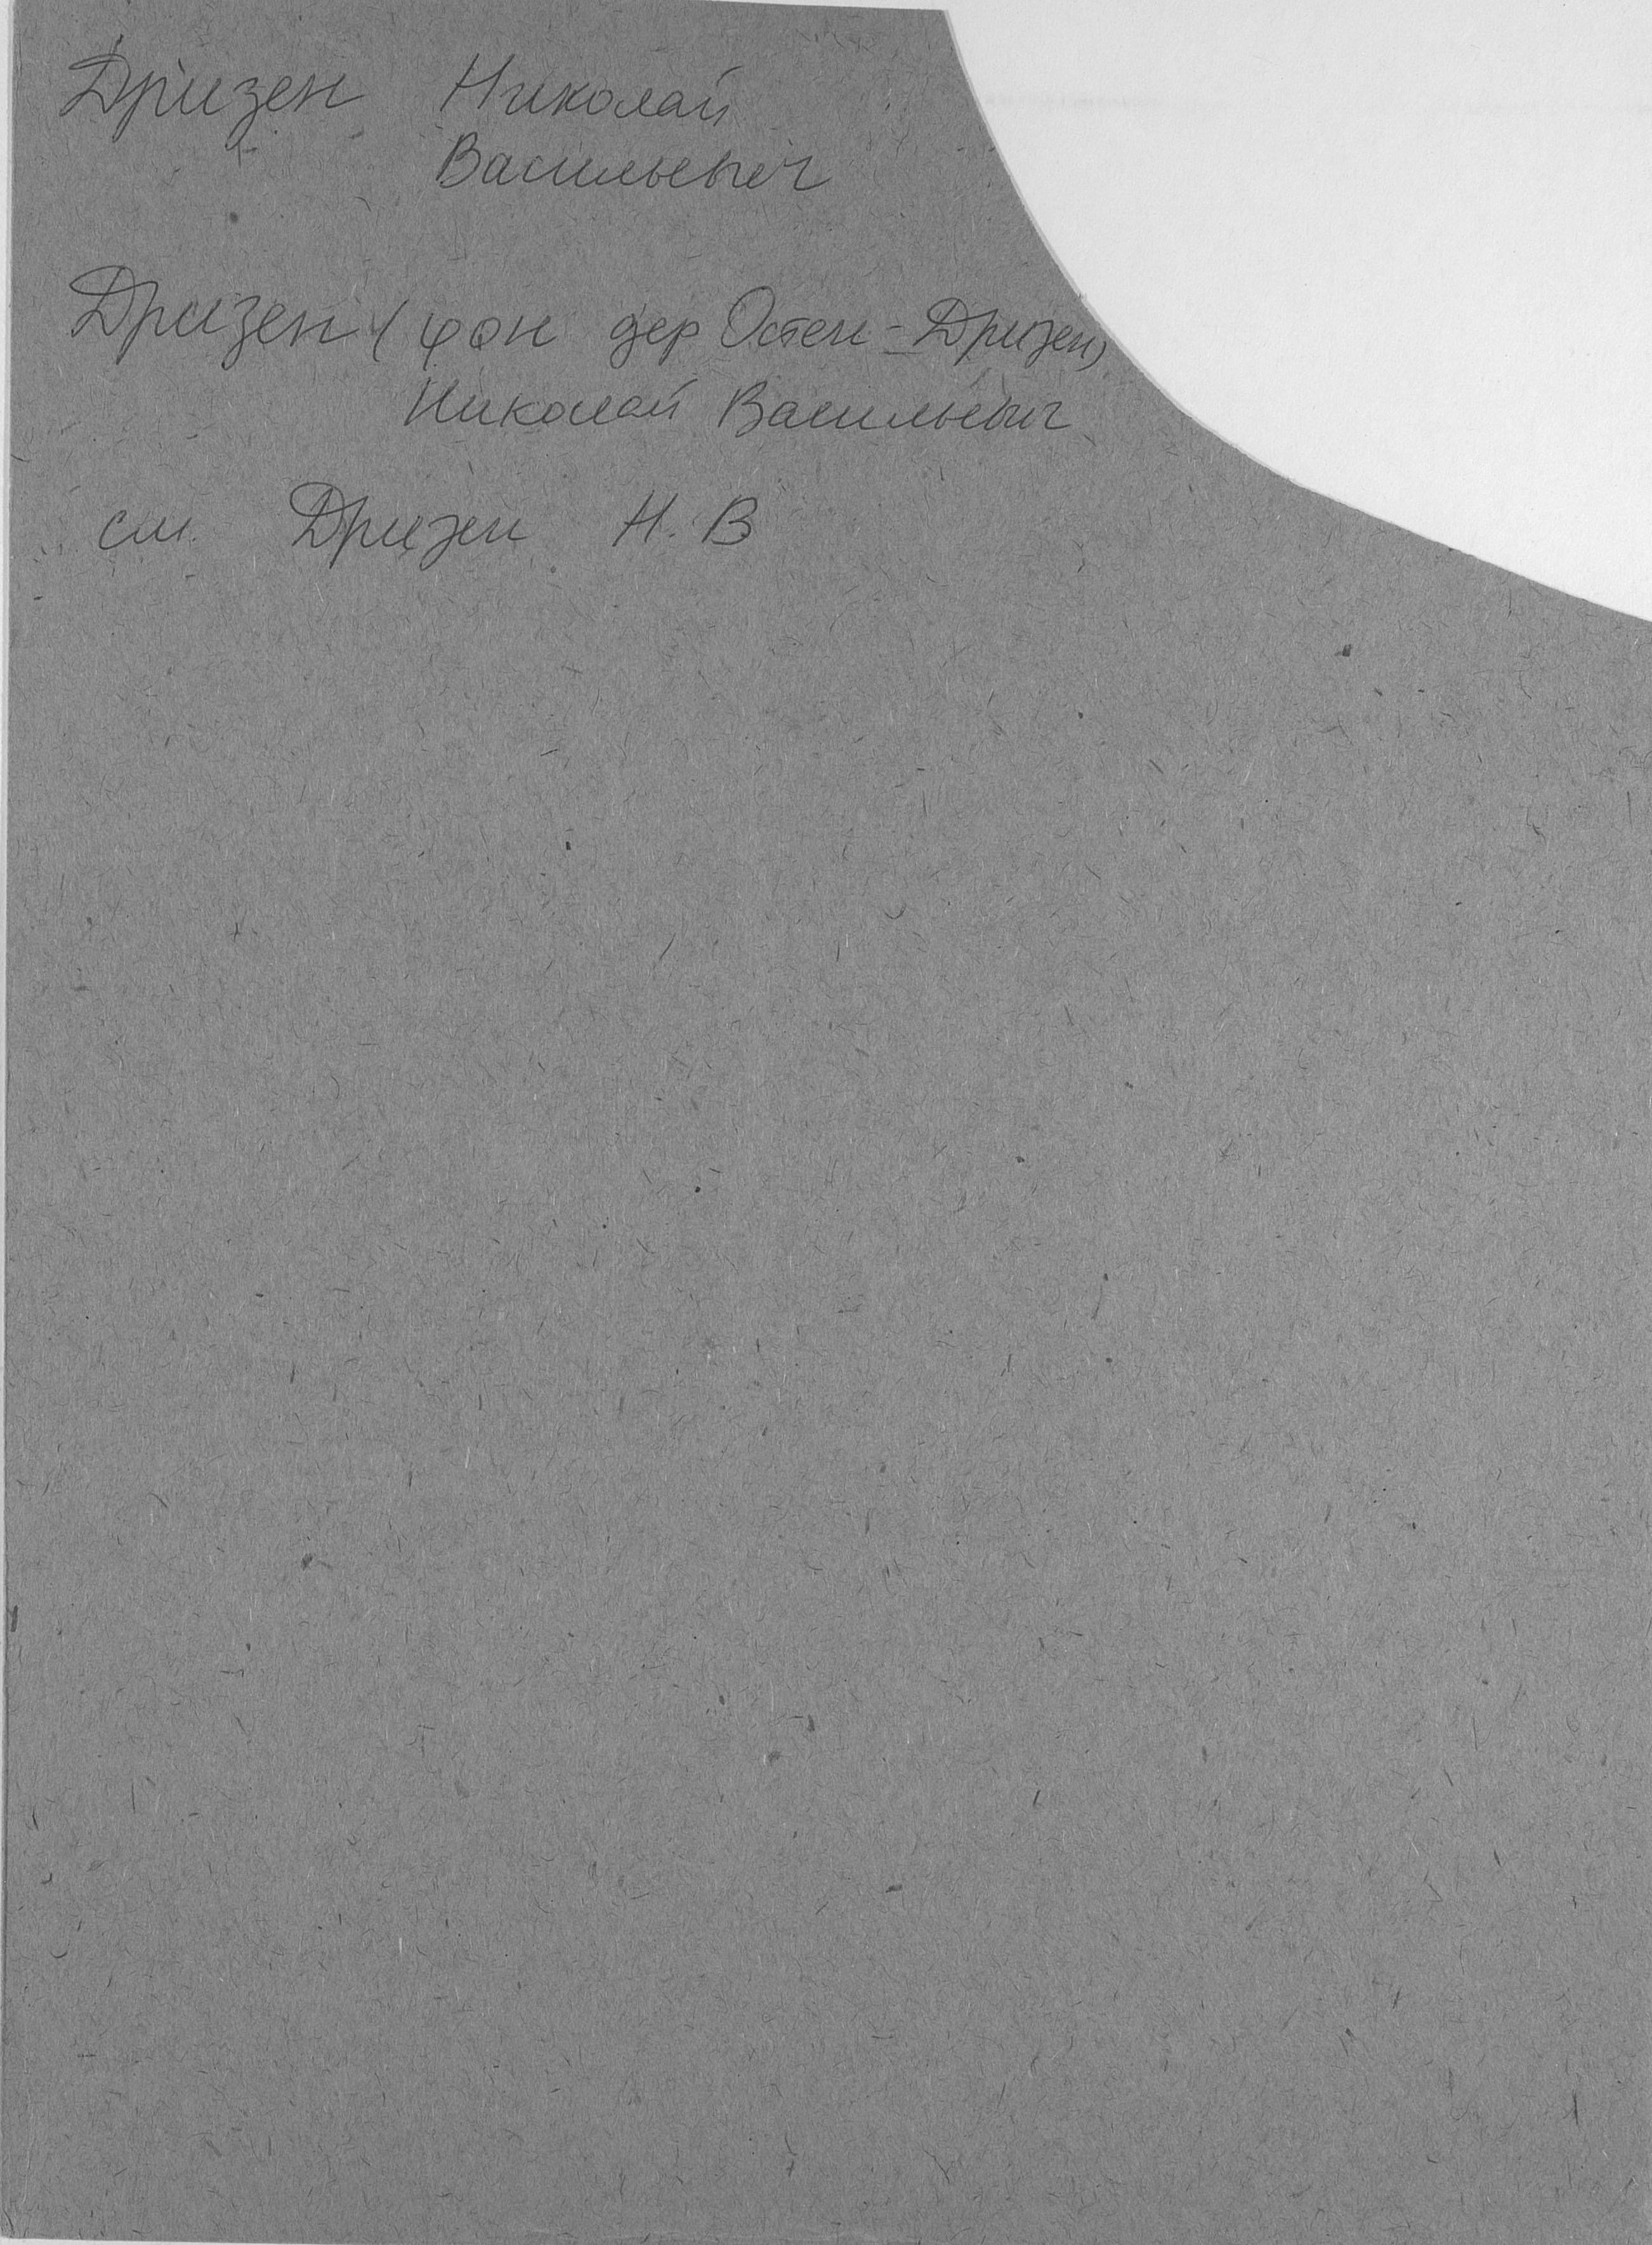 Дризен Николай
Васильевич
Дризен (фон дер Остен-Дризен)
Николай Васильевич
см. Дризен Н. В